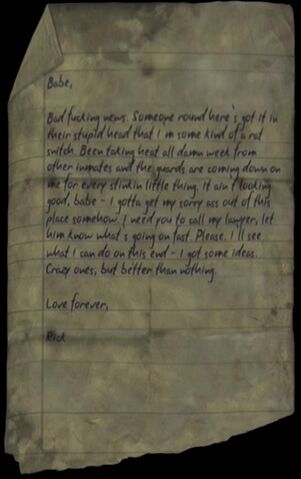 Babe,
Bad fucking news. Someone round here's got it in
their stupid head that I'm some kind of a rat
snitch. Been taking heat all damn week from
other inmates and the guards are coming down on
me for every stinkin little thing, it ain't looking
good, babe - I gotta get my sorry ass out of this
place somehow. I need you to call my lawyer, let
him know what's going on fast. Please. I'll see
what I can do on this end - I got some ideas.
Crazy ones, but better than nothing.
Love forever,
Rick